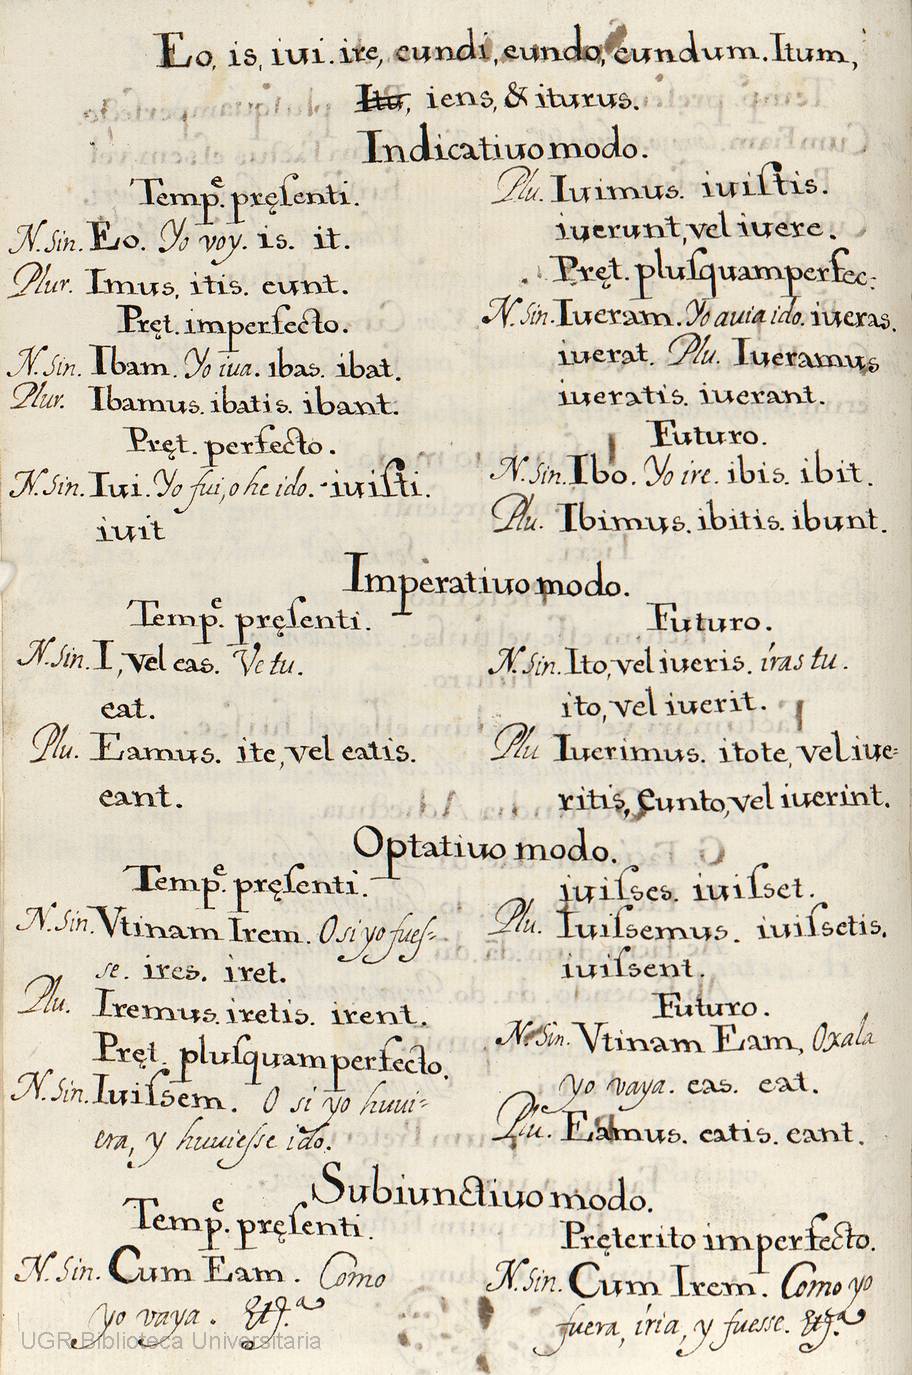 Eo, is, iui. ire, eundi, eundo, eundum. Itum,
Itu, iens, & iturus.
Indicatiuo modo.
Tempe. pręſenti.
N. Sin. Eo. Yo voy. is. it.
Plur. Imus, itis. eunt.
Pręt. imperfecto.
N. Sin. Ibam. Yo iua. ibas. ibat.
Plur. Ibamus. ibatis. ibant.
Pręt. perfecto.
N. Sin. Iui. Yo fui, o he ido. iuiſti.
iuit
Plu. Iuimus. iuiſtis.
iuerunt, vel iuere.
Pręt. pluſquamperfec:
N. Sin. Iueram. Yo auia ido. iueras.
iuerat. Plu. Iueramus
iueratis. iuerant.
Futuro.
N. Sin. Ibo. Yo ire. ibis. ibit.
Plu. Ibimus. ibitis. ibunt.
Imperatiuo modo.
Tempe. pręſenti.
N. Sin. I, vel eas. Ve tu.
eat.
Plu. Eamus. ite, vel eatis.
eant.
Futuro.
N. Sin. Ito, vel iueris. iras tu.
ito, vel iuerit.
Plu Iuerimus. itote, vel iue=
ritis, Eunto, vel iuerint.
Optatiuo modo.
Tempe. pręſenti.
N. Sin. Vtinam Irem. O si yo fueſ=
ſe. ires. iret.
Plu. Iremus. iretis. irent.
Pręt. pluſquam perfecto.
N. Sin. Iuiſsem. O si yo huui=
era, y huuieſse ido.
iuiſses. iuiſset.
Plu. Iuiſsemus. iuiſsetis.
iuiſsent.
Futuro.
N. Sin. Vtinam Eam, Oxala
yo vaya. eas. eat.
Plu. Eamus. eatis. eant.
Subiunctiuo modo.
Tempe. pręſenti.
N. Sin. Cum Eam. Como
yo vaya. &tª.
Pręterito imperfecto.
N. Sin. Cum Irem. Como yo
fuera, iria, y fuesse. &tª.
UGR Biblioteca Universitaria